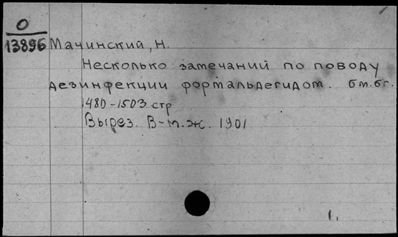 О
13896 Мачинский, Н.
Несколько замечаний по поводу
дезинфекции формальдегидом. бм. бг.
1480-1503 стр
Вырез. В-м. ж. 1901
1.